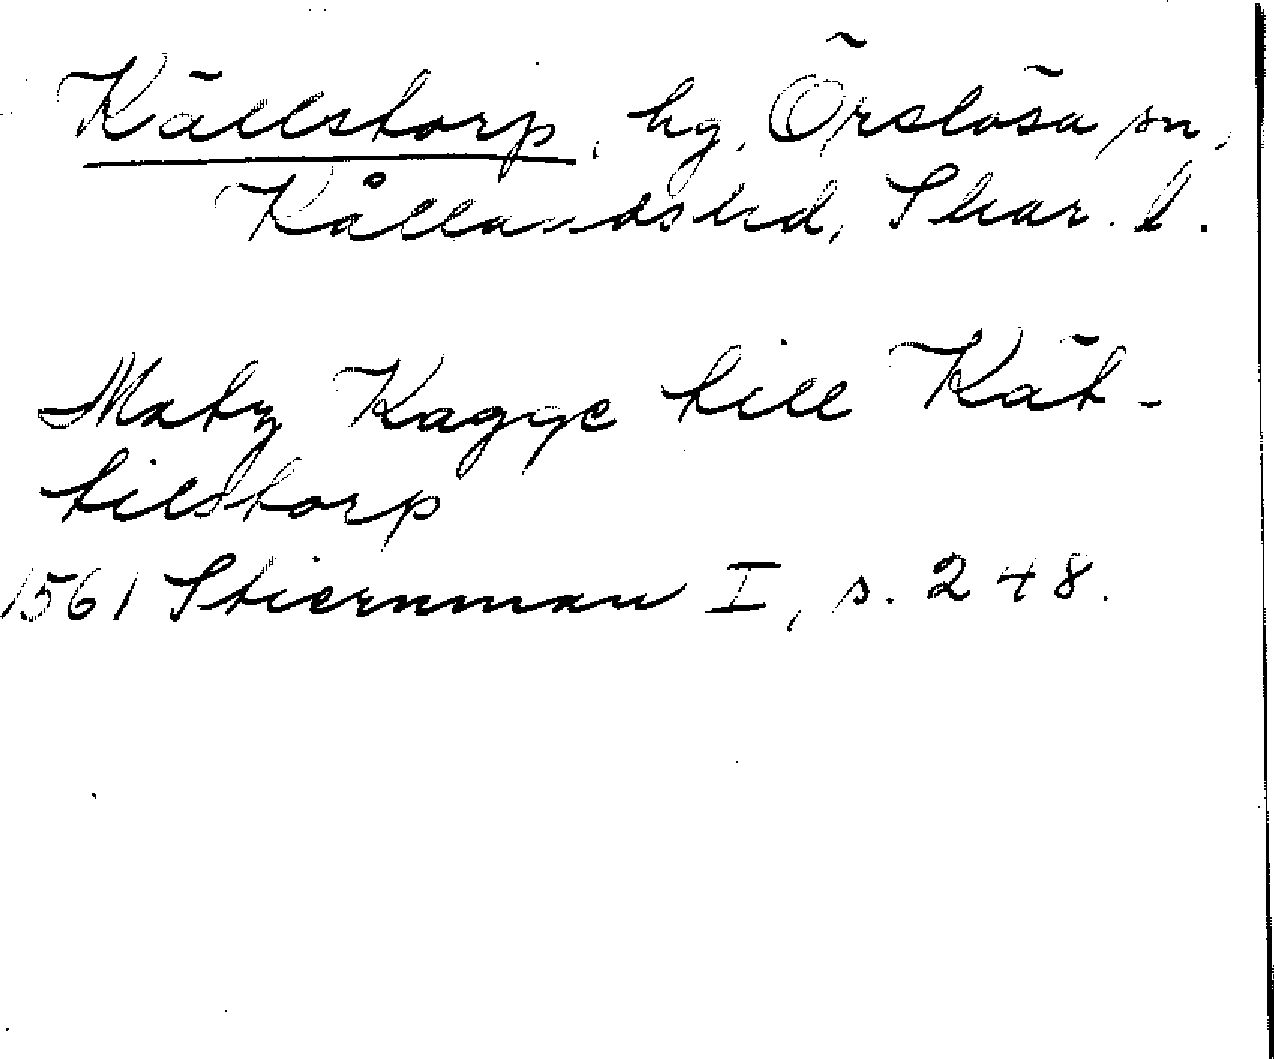 Källstorp, hg, Örslösa sn,
Kållandshd, Skar. l.
Matz Kagge till Kät-
tilstorp
1561 Stiernman I, s. 248.